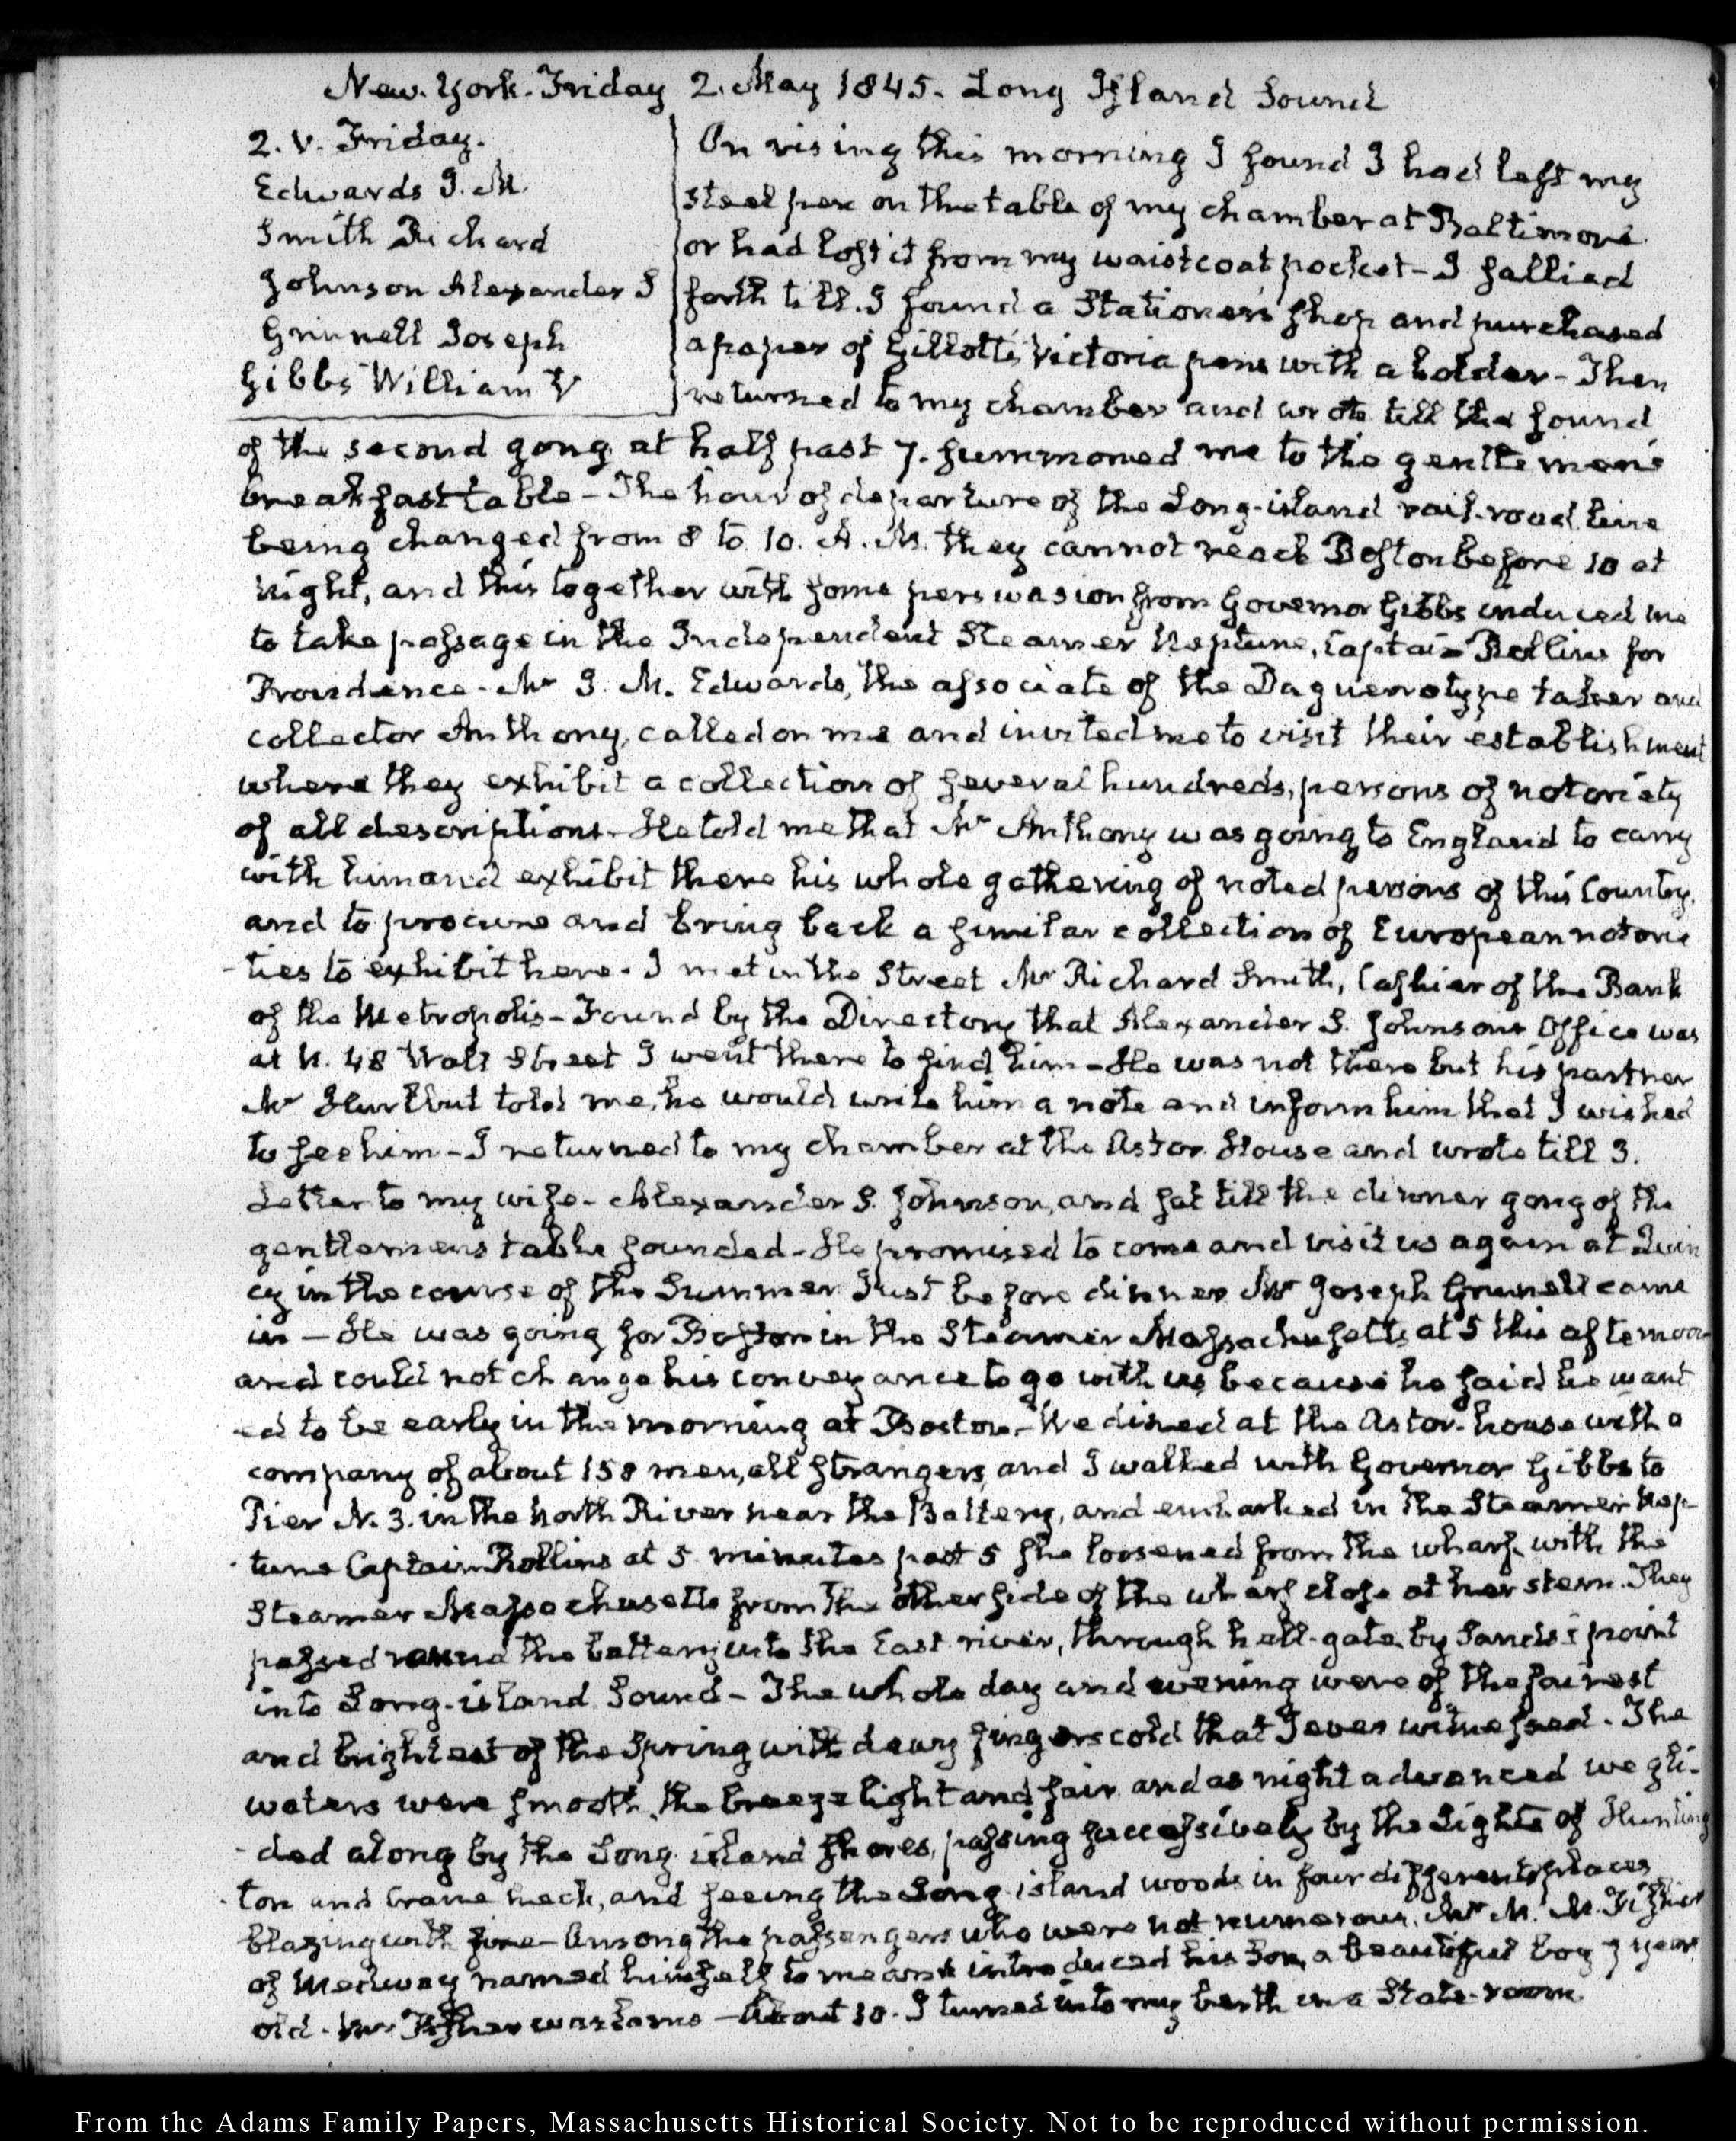 New-York-Friday 2. May 1845. Long Island Sound
2. V. Friday.
Edwards J. M.
Smith Richard
Johnson Alexander S
Grinnell Joseph
Gibbs William C
On rising this morning I found I had left my
steel pen on the table of my chamber at Baltimore
or had lost it from my waistcoat pocket – I sallied
forth till I found a Stationer's shop and purchased
a paper of Gillott's Victoria pens with a holder – Then
returned to my chamber and wrote till the sound
of the second gong at half past 7. summoned me to the gentlemens
breakfast table – The hour of departure of the Long-island rail-road line
being changed from 8 to 10. A.M. they cannot reach Boston before 10 at
night, and this together with some perswasion from Governor Gibbs induced me
to take passage in the Independent Steamer Neptune, Captain Rollins for
Providence – Mr J. M. Edwards, the associate of the Daguerrotype taker and
collector Anthony, called on me and invited me to visit their establishment
where they exhibit a collection of several hundreds, persons of notoriety
of all descriptions. He told me that Mr Anthony was going to England to carry
with him and exhibit there his whole gathering of noted persons of this Country,
and to procure and bring back a similar collection of European notorie
-ties to exhibit here. I met in the Street Mr Richard Smith, Cashier of the Bank
of the Metropolis – Found by the Directory that Alexander S. Johnsons Office was
at N. 48 Wall Street I went there to find him – He was not there but his partner
Mr Hurlbut told me, he would write him a note and inform him that I wished
to see him – I returned to my chamber at the Astor House and wrote till 3.
Letter to my wife – Alexander S. Johnson, and sat till the dinner gong of the
gentlemens table sounded – He promised to come and visit us again at Quin
cy in the course of the Summer Just before dinner Mr Joseph Grinnell came
in – He was going for Boston in the Steamer Massachusetts at 5 this afternoon
and could not change his conveyance to go with us because he said he want
-ed to be early in the morning at Boston – We dined at the Astor-house with a
company of about 150 men, all strangers, and I walked with Governor Gibbs to
Pier N. 3. in the North River near the Battery, and embarked in the Steamer Nep-
tune Captain Rollins at 5 minutes past 5 she loosened from the wharf, with the
Steamer Massachusetts from the other side of the wharf close at her stern. They
passed round the battery into the East river, through hell-gate, by Sands's point
into Long-island Sound – The whole day and evening were of the fairest
and brightest of the Spring with dewy fingers cold that I ever witnessed. The
waters were smooth, the breeze light and fair, and as night advanced we gli-
-ded along by the Long island shores, passing successively by the Lights of Hunting
ton and Crane neck, and seeing the Long island woods in four different places
blazing with fire – Among the passengers who were not numerous, Mr M. M. Fisher
of Medway named himself to me and introduced his Son, a beautiful boy 7 years
old. Mr Fisher was lame – About 10. I turned into my berth in a State-room.
From the Adams Family Papers, Massachusetts Historical Society. Not to be reproduced without permission.